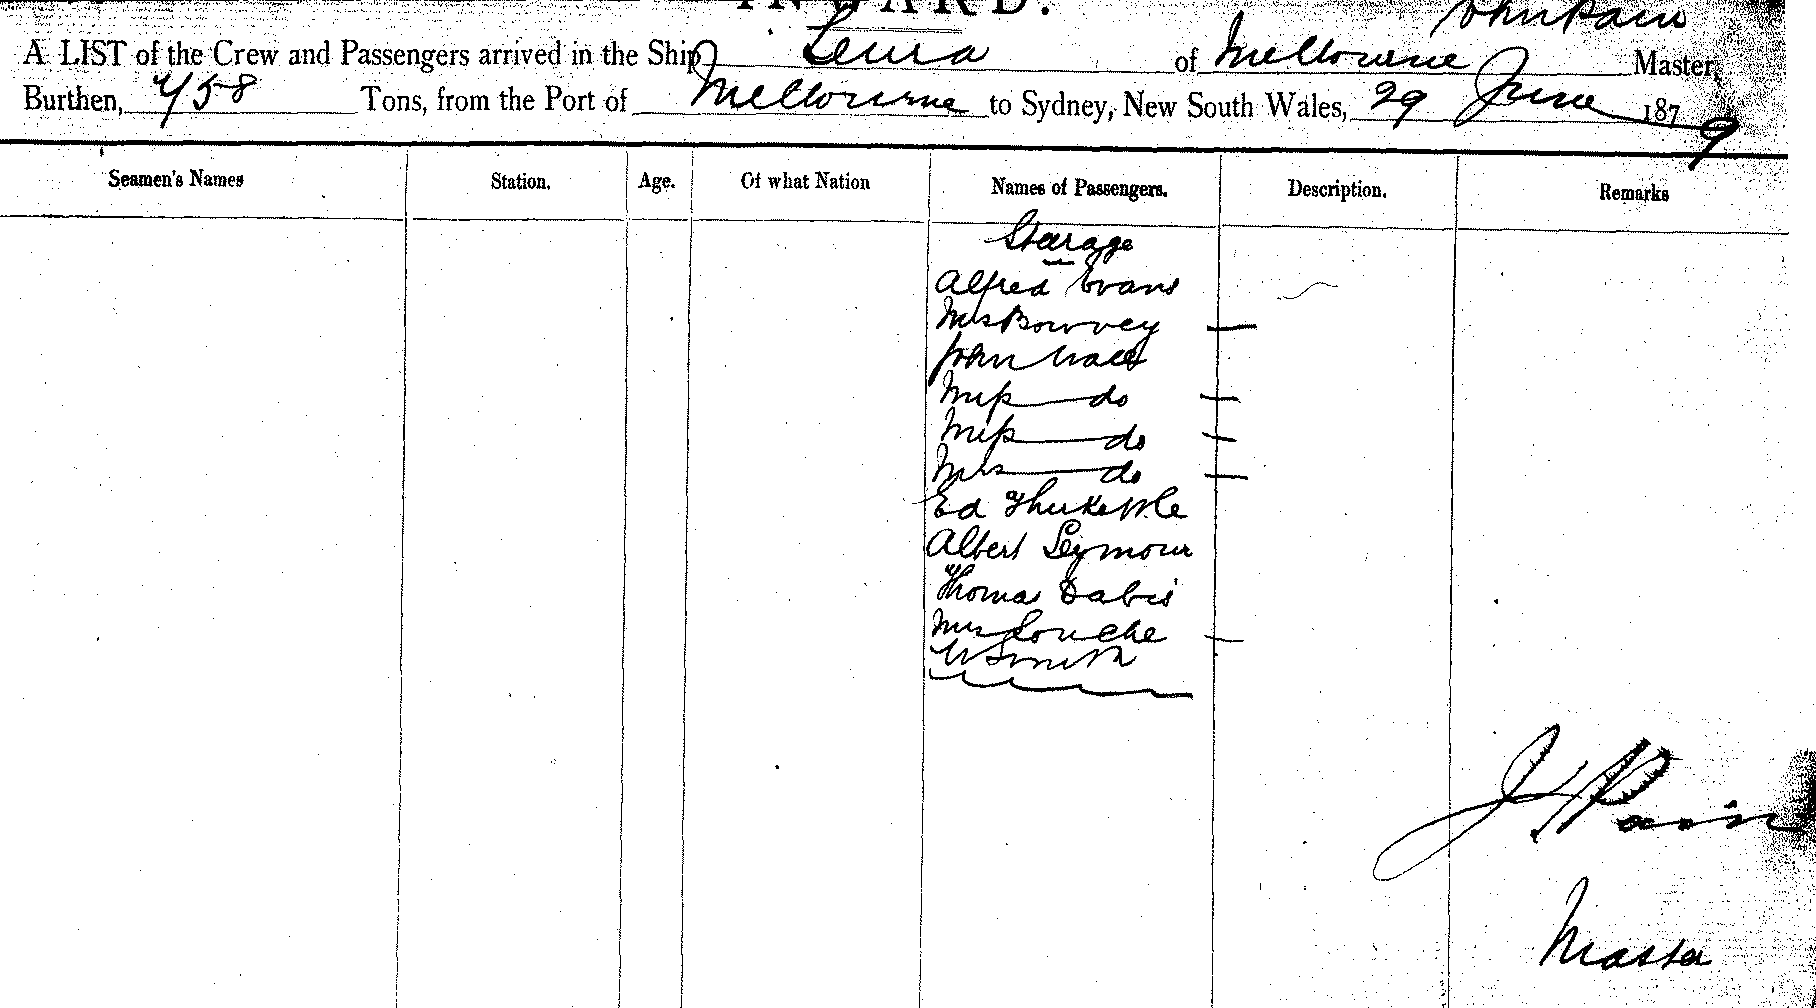 INWARD.
John Pain
A LIST of the Crew and Passengers arrived in the Ship Leura of Melbourne Master,
Burthen, 458 Tons, from the Port of Melbourne to Sydney, New South Wales, 29 June 1879
Seamen's Names Station. Age. Of what Nation Names of Passengers. Description. Remarks
Steerage
Alfred Evans
Mrs Bowvey
John
Miss do
Miss do
Mrs do
Ed Thurkettle
Albert Seymour
Thomas Dabis
Mrs Louche
W Smith
J Pain
Master